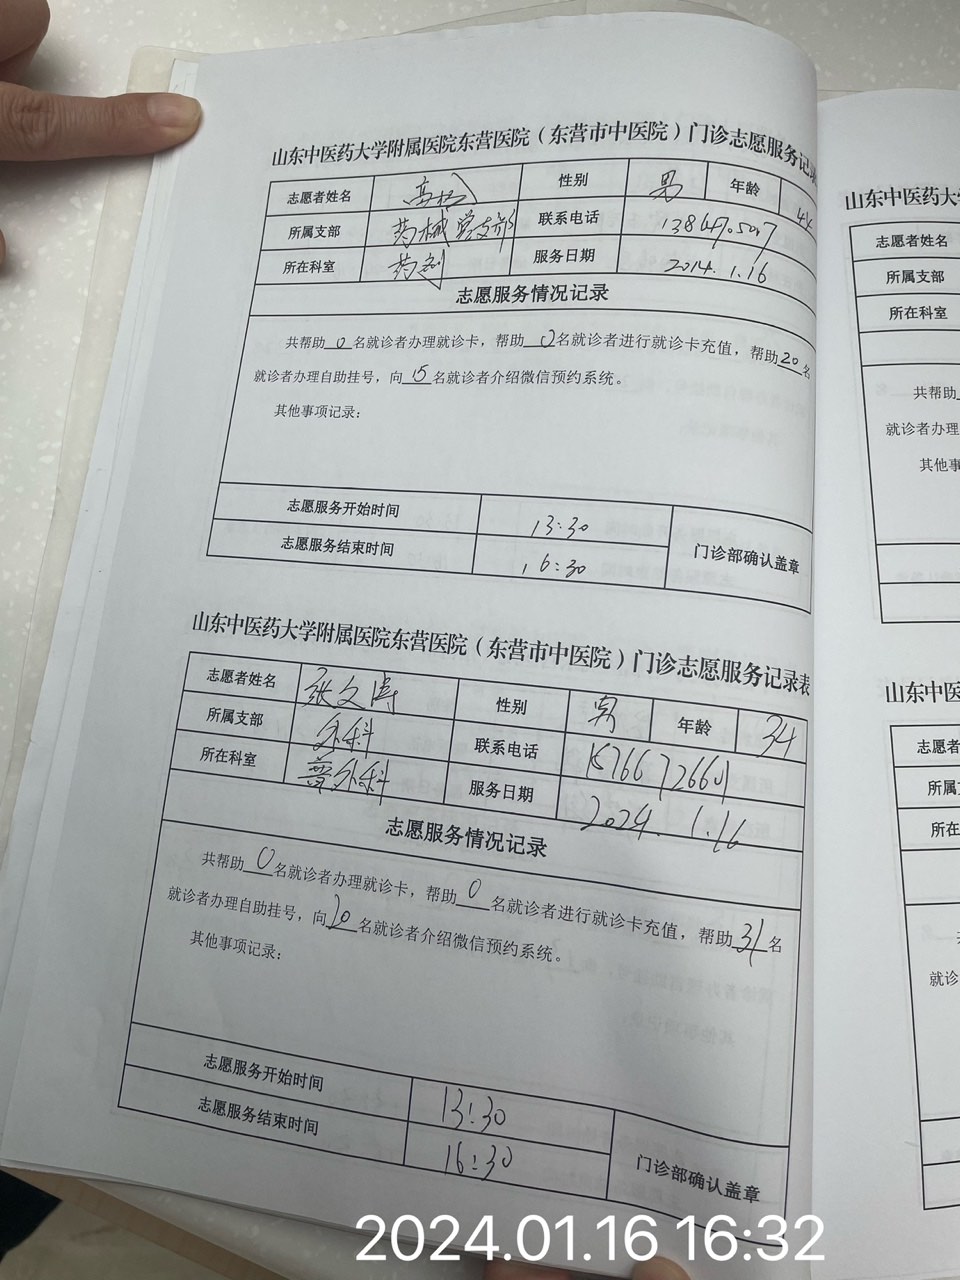 山东中医药大学附属医院东营医院（东营市中医院）门诊志愿服务记录
志愿者姓名 性别 男 年龄 44
所属支部 药械党支部 联系电话
所在科室 药剂 服务日期 2014.1.16
志愿服务情况记录
共帮助 0 名就诊者办理就诊卡，帮助 0 名就诊者进行就诊卡充值，帮助 20 名
就诊者办理自助挂号，向 15 名就诊者介绍微信预约系统。
其他事项记录：
志愿服务开始时间 13:30
志愿服务结束时间 16:30
门诊部确认盖章
山东中医药大学附属医院东营医院（东营市中医院）门诊志愿服务记录表
志愿者姓名 张文涛 性别 男 年龄 34
所属支部 外科 联系电话 15766726601
所在科室 普外科 服务日期 2024.1.16
志愿服务情况记录
共帮助 0 名就诊者办理就诊卡，帮助 0 名就诊者进行就诊卡充值，帮助 31 名
就诊者办理自助挂号，向 20 名就诊者介绍微信预约系统。
其他事项记录：
志愿服务开始时间 13:30
志愿服务结束时间 16:30
门诊部确认盖章
山东中医药大
志愿者姓名
所属支部
所在科室
共帮助
就诊者办理
其他事
山东中医
志愿者
所属
所在
就诊
2024.01.16 16:32